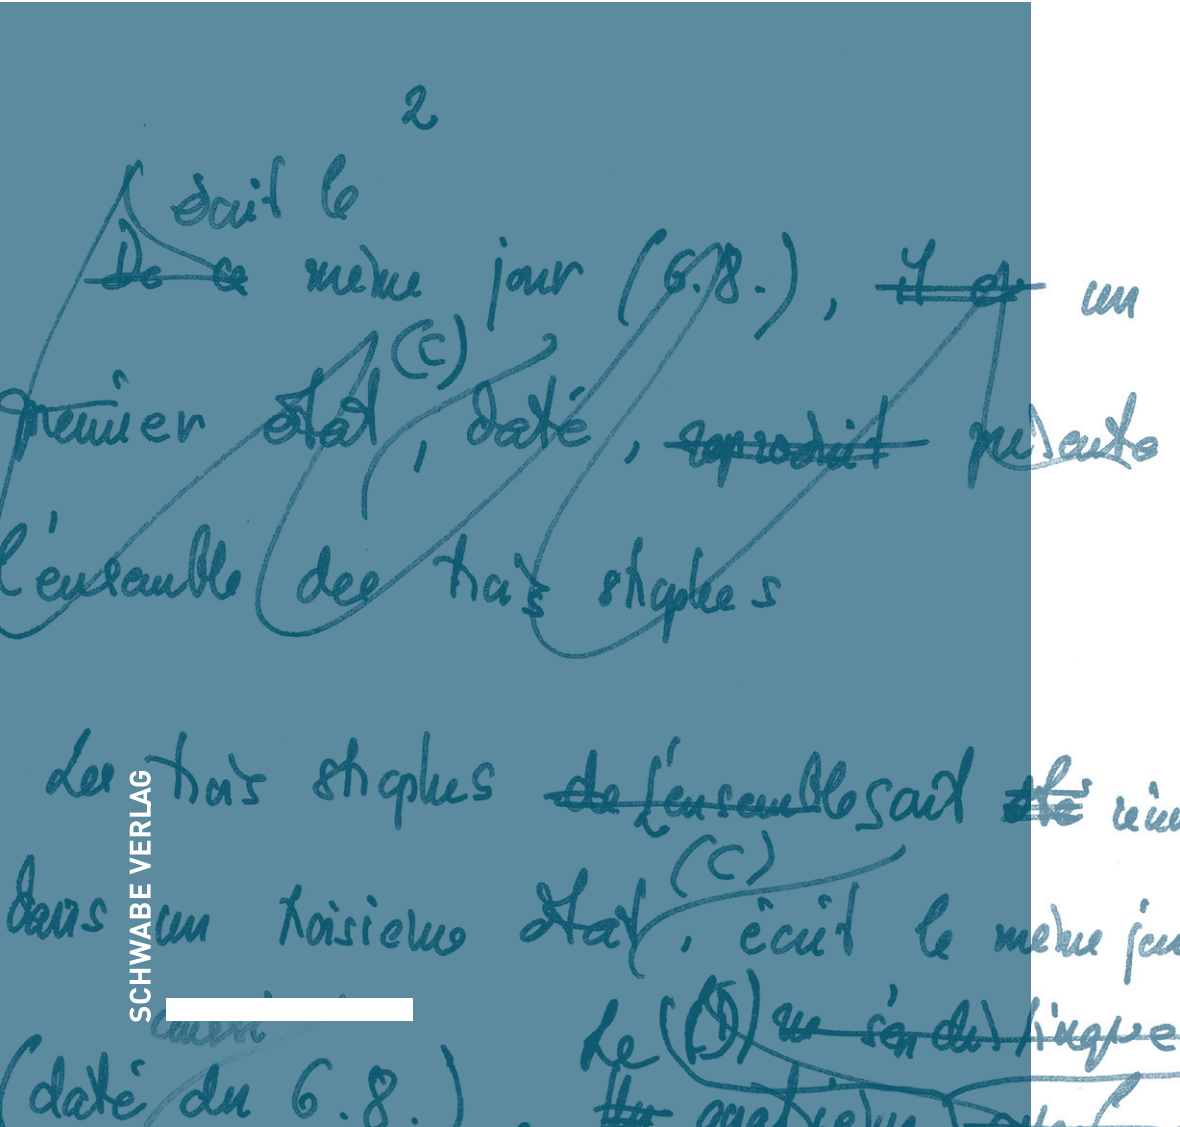 2
écrit le
De ce même jour (6.8.), il est un
premier état (C), daté, reproduit présente
l'ensemble des trois strophes
Les trois strophes de l'ensemble sont
dans un troisième état (C), écrit le même jou
Le (D) ne s'en distingue
(daté du 6.8.)
SCHWABE VERLAG